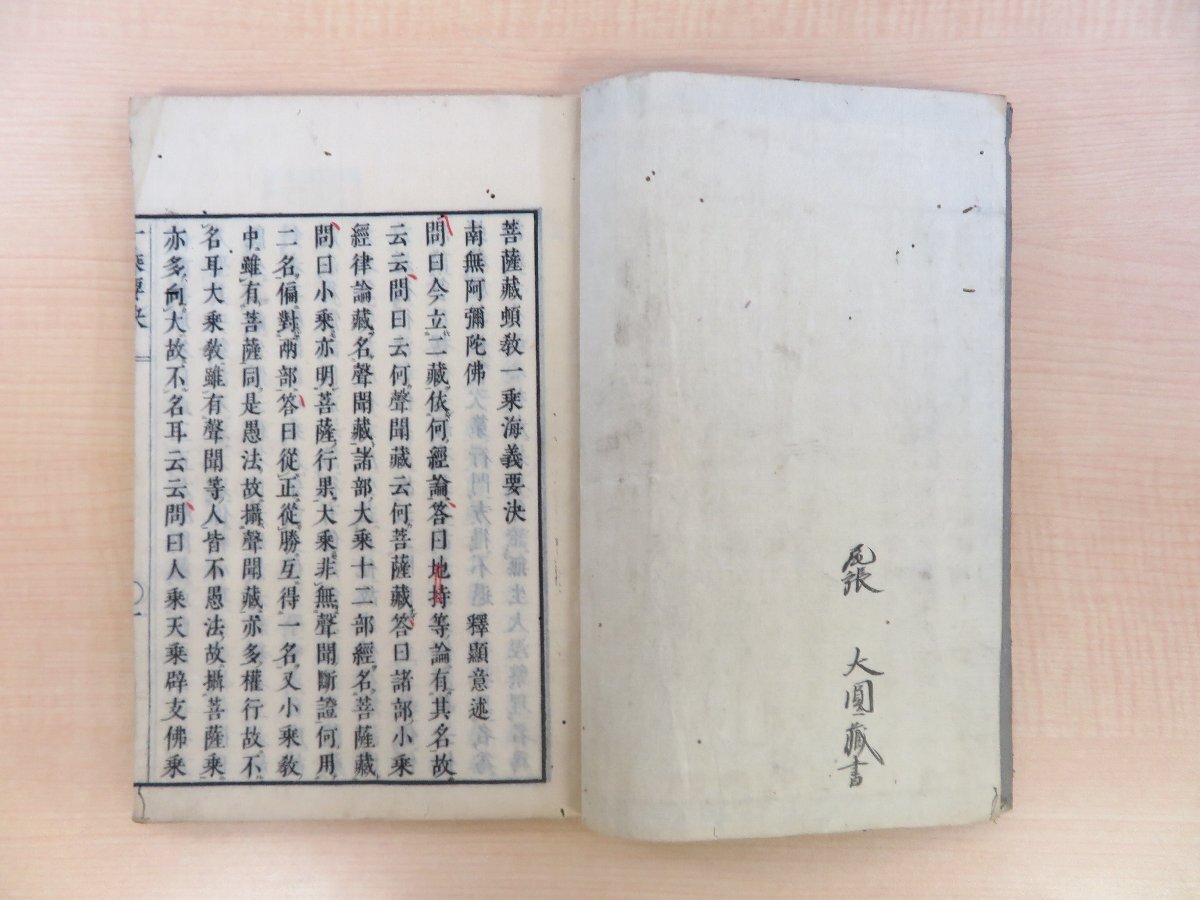 尾張 大圓藏書
菩薩藏頓敎一乘海義要決
南無阿彌陀佛 釋顯意述
問曰今立二藏依何經論答曰地持等論有其名故
云云問曰云何聲聞藏云何菩薩藏答曰諸部小乘
經律論藏名聲聞藏諸部大乘十二部經名菩薩藏
問曰小乘亦明菩薩行果大乘非無聲聞斷證何用
二名偏對兩部答曰從正從勝互得一名又小乘敎
中雖有菩薩同是愚法故攝聲聞藏亦多權行故不
名耳大乘敎雖有聲聞等人皆不愚法故攝菩薩乘
亦多向大故不名耳云云問曰人乘天乘辟支佛乘